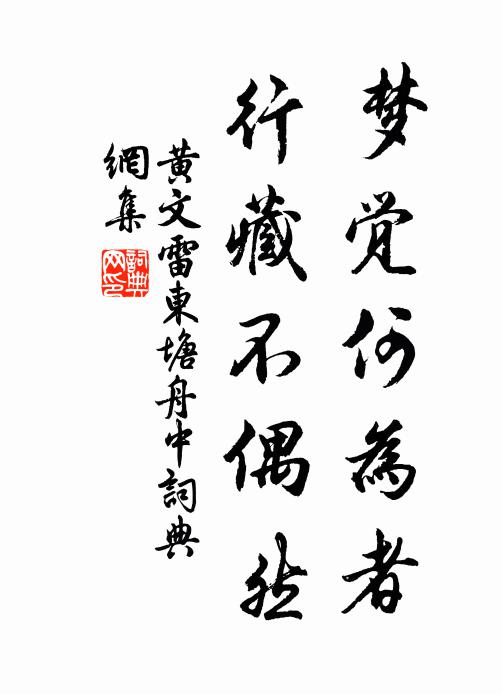 梦觉何為者
行藏不偶然
黃文雷東塘舟中詞典
網集
詞典网印